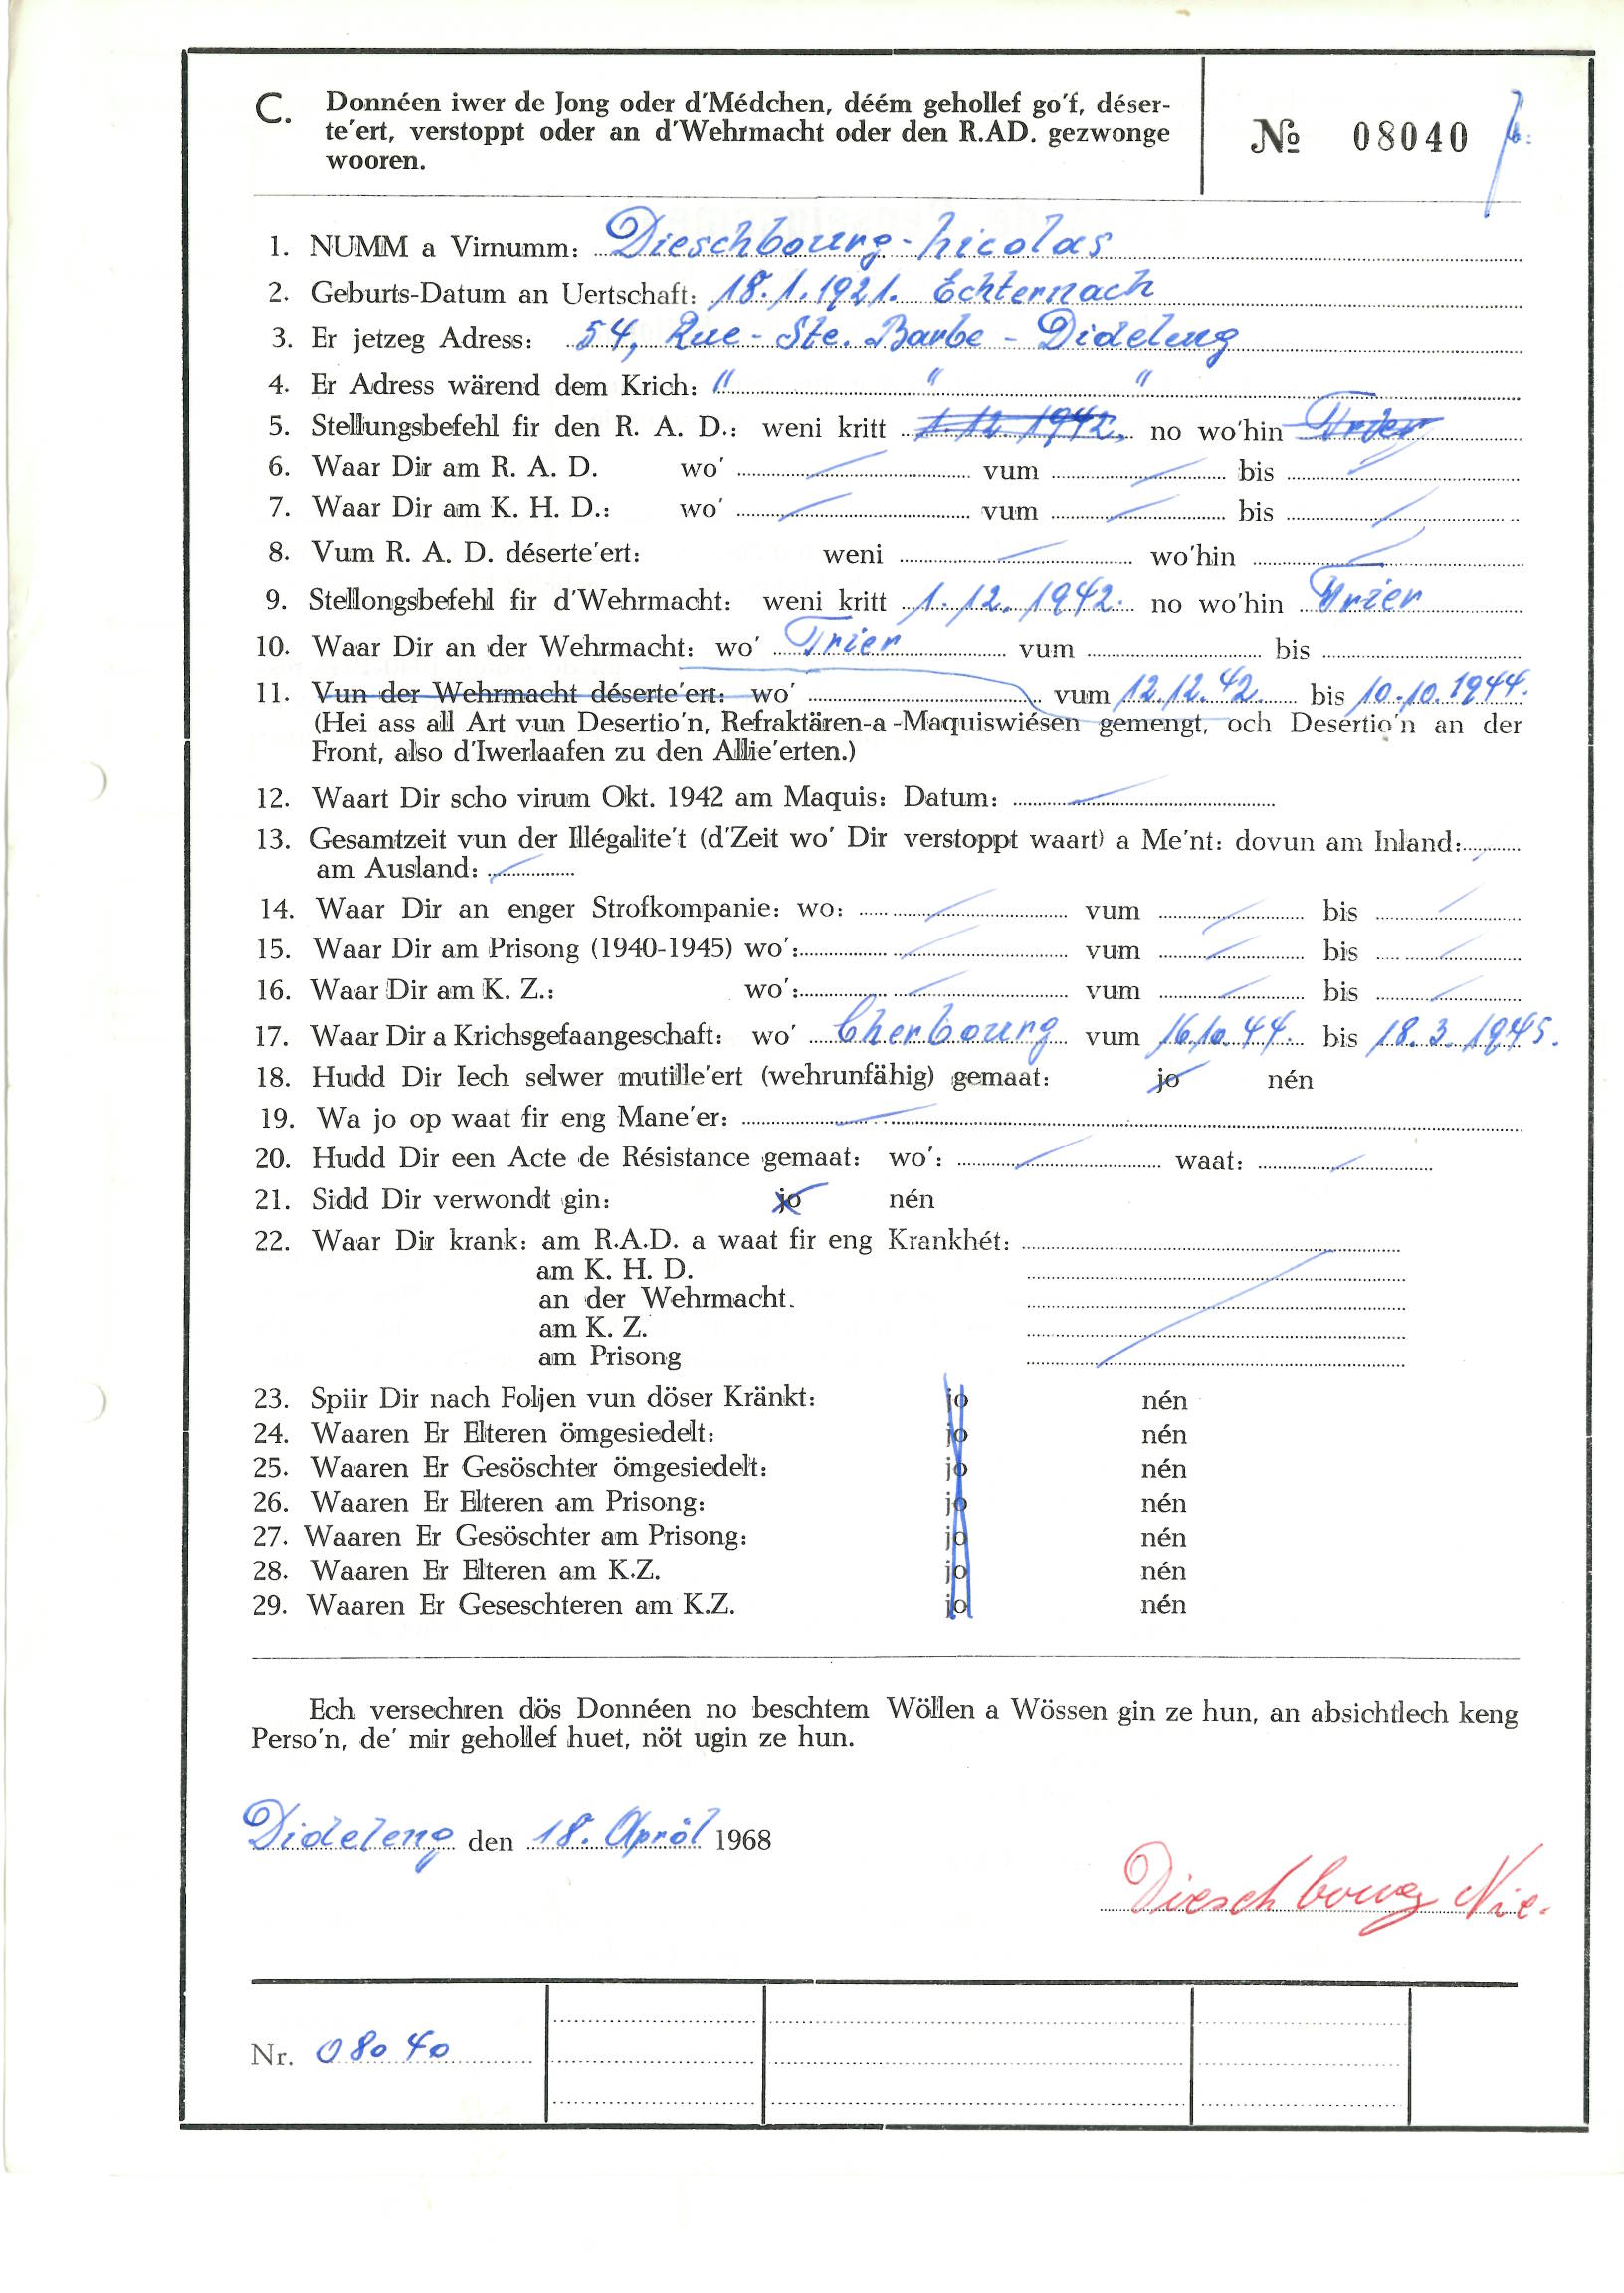 C. Donnéen iwer de Jong oder d'Médchen, déém gehollef go'f, déser-
te'ert, verstoppt oder an d'Wehrmacht oder den R.AD. gezwonge
wooren.
№ 08040
1. NUMM a Virnumm: Dieschbourg - Nicolas
2. Geburts-Datum an Uertschaft: 18.1.1921. Echternach
3. Er jetzeg Adress: 54, Rue - Ste. Barbe - Dideleng
4. Er Adress wärend dem Krich: " " "
5. Stellungsbefehl fir den R. A. D.: weni kritt 1.12.1942. no wo'hin Trier
6. Waar Dir am R. A. D. wo' vum bis
7. Waar Dir am K. H. D.: wo' vum bis
8. Vum R. A. D. déserte'ert: weni wo'hin
9. Stellongsbefehl fir d'Wehrmacht: weni kritt 1.12.1942. no wo'hin Trier
10. Waar Dir an der Wehrmacht: wo' Trier vum bis
11. Vun der Wehrmacht déserte'ert: wo' vum 12.12.42. bis 10.10.1944.
(Hei ass all Art vun Desertio'n, Refraktären-a -Maquiswiésen gemengt, och Desertio'n an der
Front, also d'Iwerlaafen zu den Allie'erten.)
12. Waart Dir scho virum Okt. 1942 am Maquis: Datum:
13. Gesamtzeit vun der Illégalite't (d'Zeit wo' Dir verstoppt waart) a Me'nt: dovun am Inland:
am Ausland:
14. Waar Dir an enger Strofkompanie: wo: vum bis
15. Waar Dir am Prisong (1940-1945) wo': vum bis
16. Waar Dir am K. Z.: wo': vum bis
17. Waar Dir a Krichsgefaangeschaft: wo' Cherbourg vum 16.10.44. bis 18.3.1945.
18. Hudd Dir Iech selwer mutille'ert (wehrunfähig) gemaat: jo nén
19. Wa jo op waat fir eng Mane'er:
20. Hudd Dir een Acte de Résistance gemaat: wo': waat:
21. Sidd Dir verwondt gin: jo nén
22. Waar Dir krank: am R.A.D. a waat fir eng Krankhét:
am K. H. D.
an der Wehrmacht.
am K. Z.
am Prisong
23. Spiir Dir nach Foljen vun döser Kränkt: jo nén
24. Waaren Er Elteren ömgesiedelt: jo nén
25. Waaren Er Gesöschter ömgesiedelt: jo nén
26. Waaren Er Elteren am Prisong: jo nén
27. Waaren Er Gesöschter am Prisong: jo nén
28. Waaren Er Elteren am K.Z. jo nén
29. Waaren Er Geseschteren am K.Z. jo nén
Ech versechren dös Donnéen no beschtem Wöllen a Wössen gin ze hun, an absichtlech keng
Perso'n, de' mir gehollef huet, nöt ugin ze hun.
Dideleng den 18. Apröl 1968
Dieschbourg Nic.
Nr. 08040